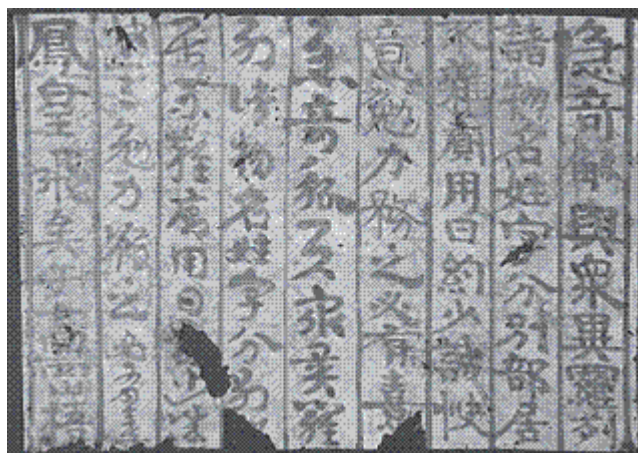 急奇觚與衆異羅列
諸物名姓字分別部居
不雜廁用日約少誠快
意勉力務之必有憙
急奇觚與衆異羅
列諸物名姓字分別
居不雜廁用日少誠
意勉力務之必有
鳳皇飛矣于